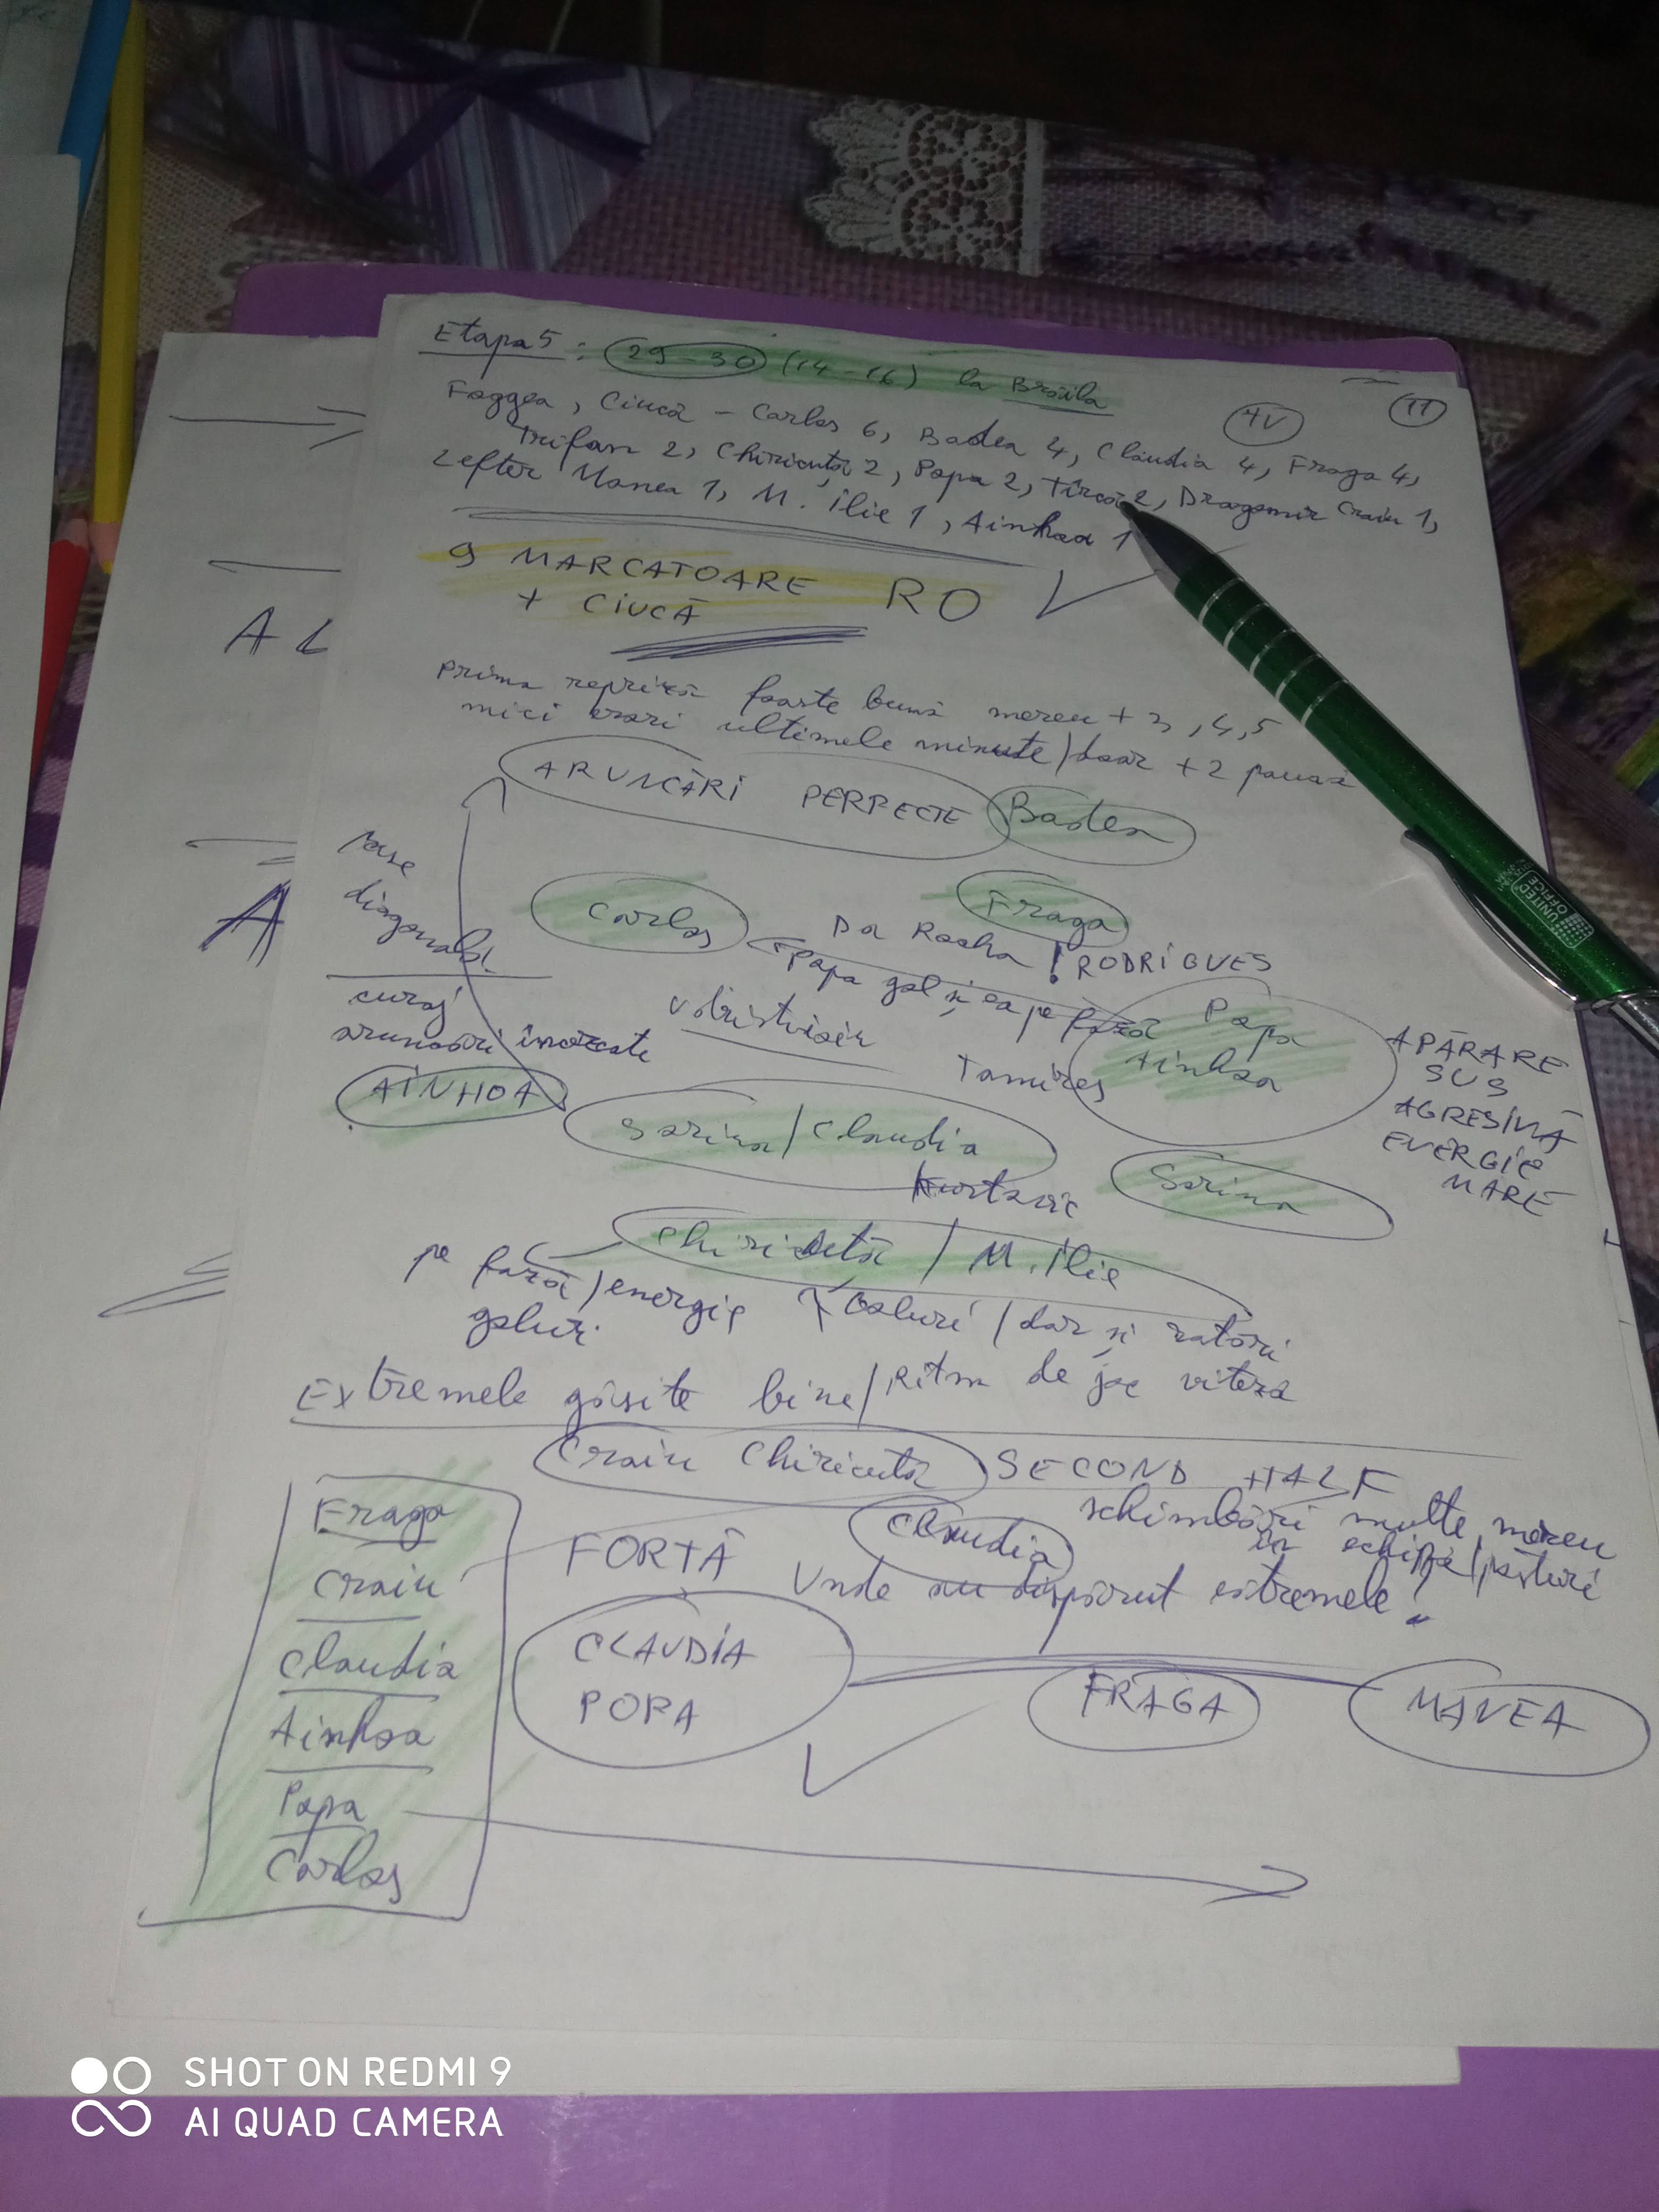 Etapa 5 : 29-30 (14-16) la Brăila
TV
11
Foggea, Ciucă - Carlos 6, Badea 4, Claudia 4, Fraga 4,
Trifan 2, Chiricuță 2, Popa 2, Tîrcă 2, Dragomir Craiu 1,
Zefter Manea 1, M. Ilie 1, Ainhoa 1
9 MARCATOARE RO
+ CIUCĂ
prima repriză foarte bună mereu + 3, 4, 5
mici erori ultimele minute / doar + 2 pauză
A L
ARUNCĂRI PERFECTE Badea
pase
diagonale
A
Carlos
Fraga
Da Rocha ! RODRIGUES
Popa gol și ea pe fază
curaj
aruncări încercate
Popa
Ainhoa
Tamires
APĂRARE
SUS
AGRESIVĂ
ENERGIE
MARE
AINHOA
Sorina / Claudia
Sorina
Chiricuță / M. Ilie
pe fază / energie
goluri
Goluri / dar și ratări
Extremele găsite bine / Ritm de joc viteză
Craiu Chiricuță SECOND HALF
schimbări multe, mereu
în echipă / pasturi
Fraga
Craiu
Claudia
Ainhoa
Popa
Carlos
FORȚĂ
Claudia
Unde au dispărut extremele!
CLAUDIA
POPA
FRAGA
MANEA
UNITED OFFICE
SHOT ON REDMI 9
AI QUAD CAMERA